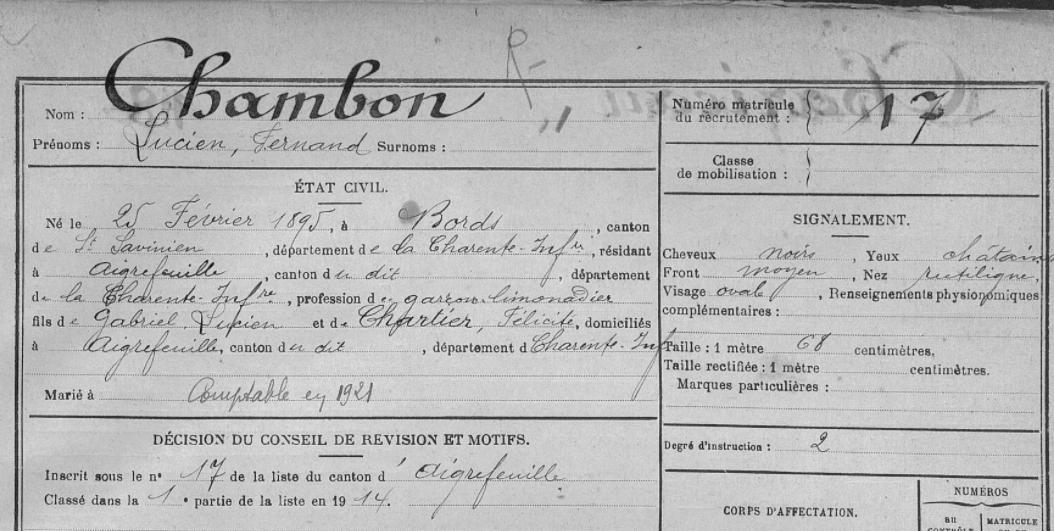 R
Chambon
Nom :
Prénoms : Lucien, Fernand Surnoms :
ÉTAT CIVIL.
Né le 25 Février 1895, à Bords, canton
de St Savinien, département de la Charente-Infre, résidant
à Aigrefeuille, canton du dit, département
de la Charente-Infre, profession de garçon limonadier
fils de Gabriel Lucien et de Chartier, Félicité, domiciliés
à Aigrefeuille, canton du dit, département d Charente-Inf
Marié à Comptable en 1921
DÉCISION DU CONSEIL DE REVISION ET MOTIFS.
Inscrit sous le n° 17 de la liste du canton d' Aigrefeuille
Classé dans la 1e partie de la liste en 1914.
Numéro matricule
du recrutement : 17
Classe
de mobilisation :
SIGNALEMENT.
Cheveux noirs, Yeux châtains
Front moyen, Nez rectiligne,
Visage ovale, Renseignements physionomiques
complémentaires :
Taille : 1 mètre 68 centimètres.
Taille rectifiée : 1 mètre centimètres.
Marques particulières :
Degré d'instruction : 2
CORPS D'AFFECTATION.
NUMÉROS
au
CONTRÔLE
MATRICULE